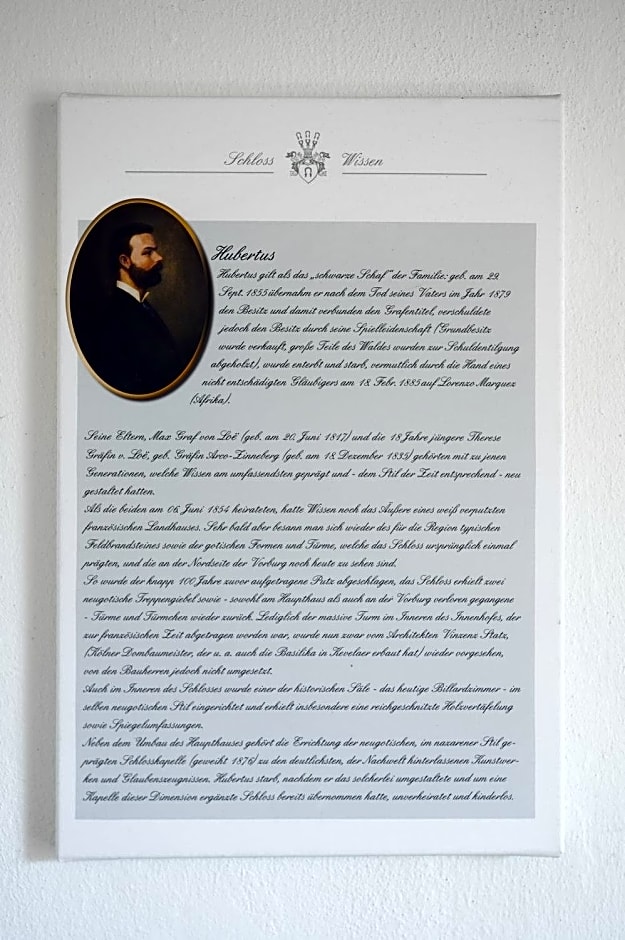 Schloss Wissen
Hubertus
Hubertus gilt als das „schwarze Schaf" der Familie: geb. am 29.
Sept. 1855 übernahm er nach dem Tod seines Vaters im Jahr 1879
den Besitz und damit verbunden den Grafentitel, verschuldete
jedoch den Besitz durch seine Spielleidenschaft (Grundbesitz
wurde verkauft, große Teile des Waldes wurden zur Schuldentilgung
abgeholzt), wurde enterbt und starb, vermutlich durch die Hand eines
nicht entschädigten Gläubigers am 18. Febr. 1885 auf Lorenzo Marquez
(Afrika).
Seine Eltern, Max Graf von Loë (geb. am 20. Juni 1817) und die 18 Jahre jüngere Therese
Gräfin v. Loë, geb. Gräfin Arco-Zinneberg (geb. am 18. Dezember 1835) gehörten mit zu jenen
Generationen, welche Wissen am umfassendsten geprägt und - dem Stil der Zeit entsprechend - neu
gestaltet hatten.
Als die beiden am 06. Juni 1854 heirateten, hatte Wissen noch das Äußere eines weiß verputzten
französischen Landhauses. Sehr bald aber besann man sich wieder des für die Region typischen
Feldbrandsteines sowie der gotischen Formen und Türme, welche das Schloss ursprünglich einmal
prägten, und die an der Nordseite der Vorburg noch heute zu sehen sind.
So wurde der knapp 100 Jahre zuvor aufgetragene Putz abgeschlagen, das Schloss erhielt zwei
neugotische Treppengiebel sowie - sowohl am Haupthaus als auch an der Vorburg verloren gegangene
- Türme und Türmchen wieder zurück. Lediglich der massive Turm im Inneren des Innenhofes, der
zur französischen Zeit abgetragen worden war, wurde nun zwar vom Architekten Vinzenz Statz,
(Kölner Dombaumeister, der u. a. auch die Basilika in Kevelaer erbaut hat) wieder vorgesehen,
von den Bauherren jedoch nicht umgesetzt.
Auch im Inneren des Schlosses wurde einer der historischen Säle - das heutige Billardzimmer - im
selben neugotischen Stil eingerichtet und erhielt insbesondere eine reichgeschnitzte Holzvertäfelung
sowie Spiegelumfassungen.
Neben dem Umbau des Haupthauses gehört die Errichtung der neugotischen, im nazarener Stil ge-
prägten Schlosskapelle (geweiht 1876) zu den deutlichsten, der Nachwelt hinterlassenen Kunstwer-
ken und Glaubenszeugnissen. Hubertus starb, nachdem er das solcherlei umgestaltete und um eine
Kapelle dieser Dimension ergänzte Schloss bereits übernommen hatte, unverheiratet und kinderlos.